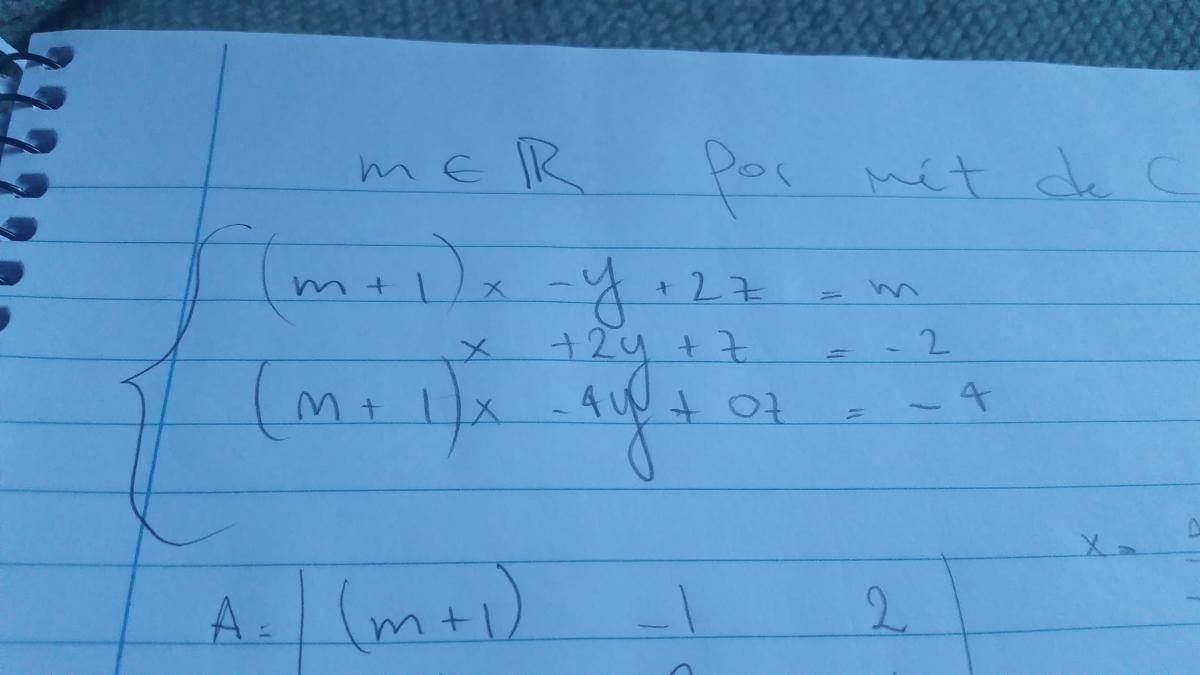 m ∈ ℝ Por mét de C
(m + 1) x - y + 2z = m
x + 2y + z = - 2
(m + 1) x - 4y + 0z = - 4
x =
A = | (m + 1) - 1 2 |